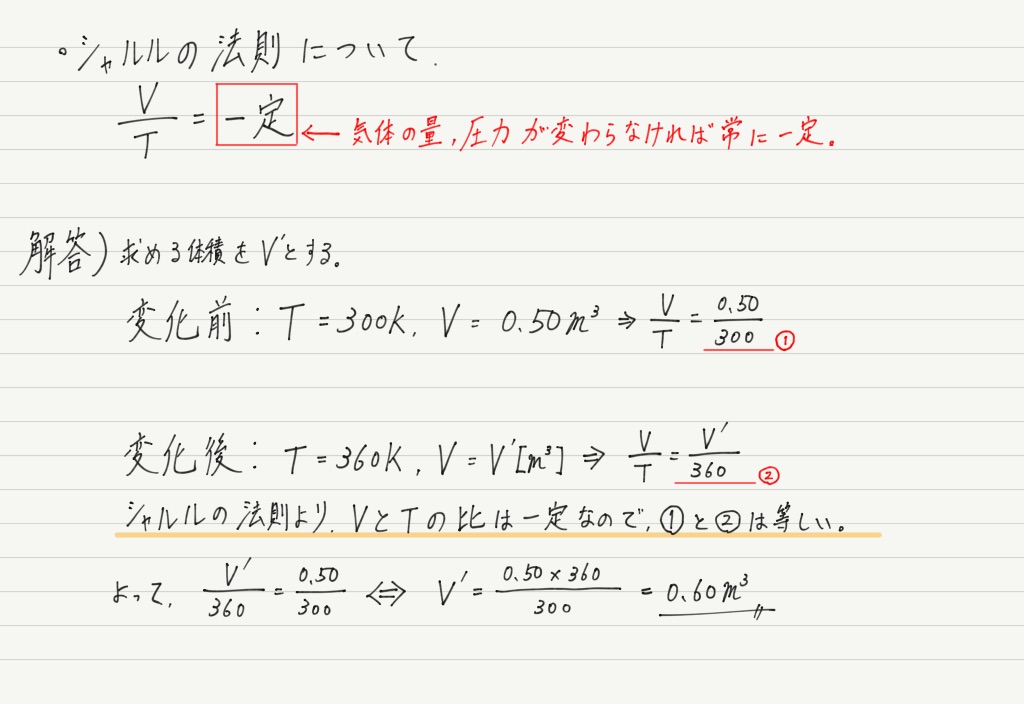 ・シャルルの法則について.
V/T = 一定 ← 気体の量,圧力が変わらなければ常に一定。
解答) 求める体積をV'とする。
変化前: T = 300K, V = 0.50m³ ⇒ V/T = 0.50/300 ①
変化後: T = 360K, V = V'[m³] ⇒ V/T = V'/360 ②
シャルルの法則より, VとTの比は一定なので, ①と②は等しい。
よって, V'/360 = 0.50/300 ⇔ V' = 0.50×360/300 = 0.60m³